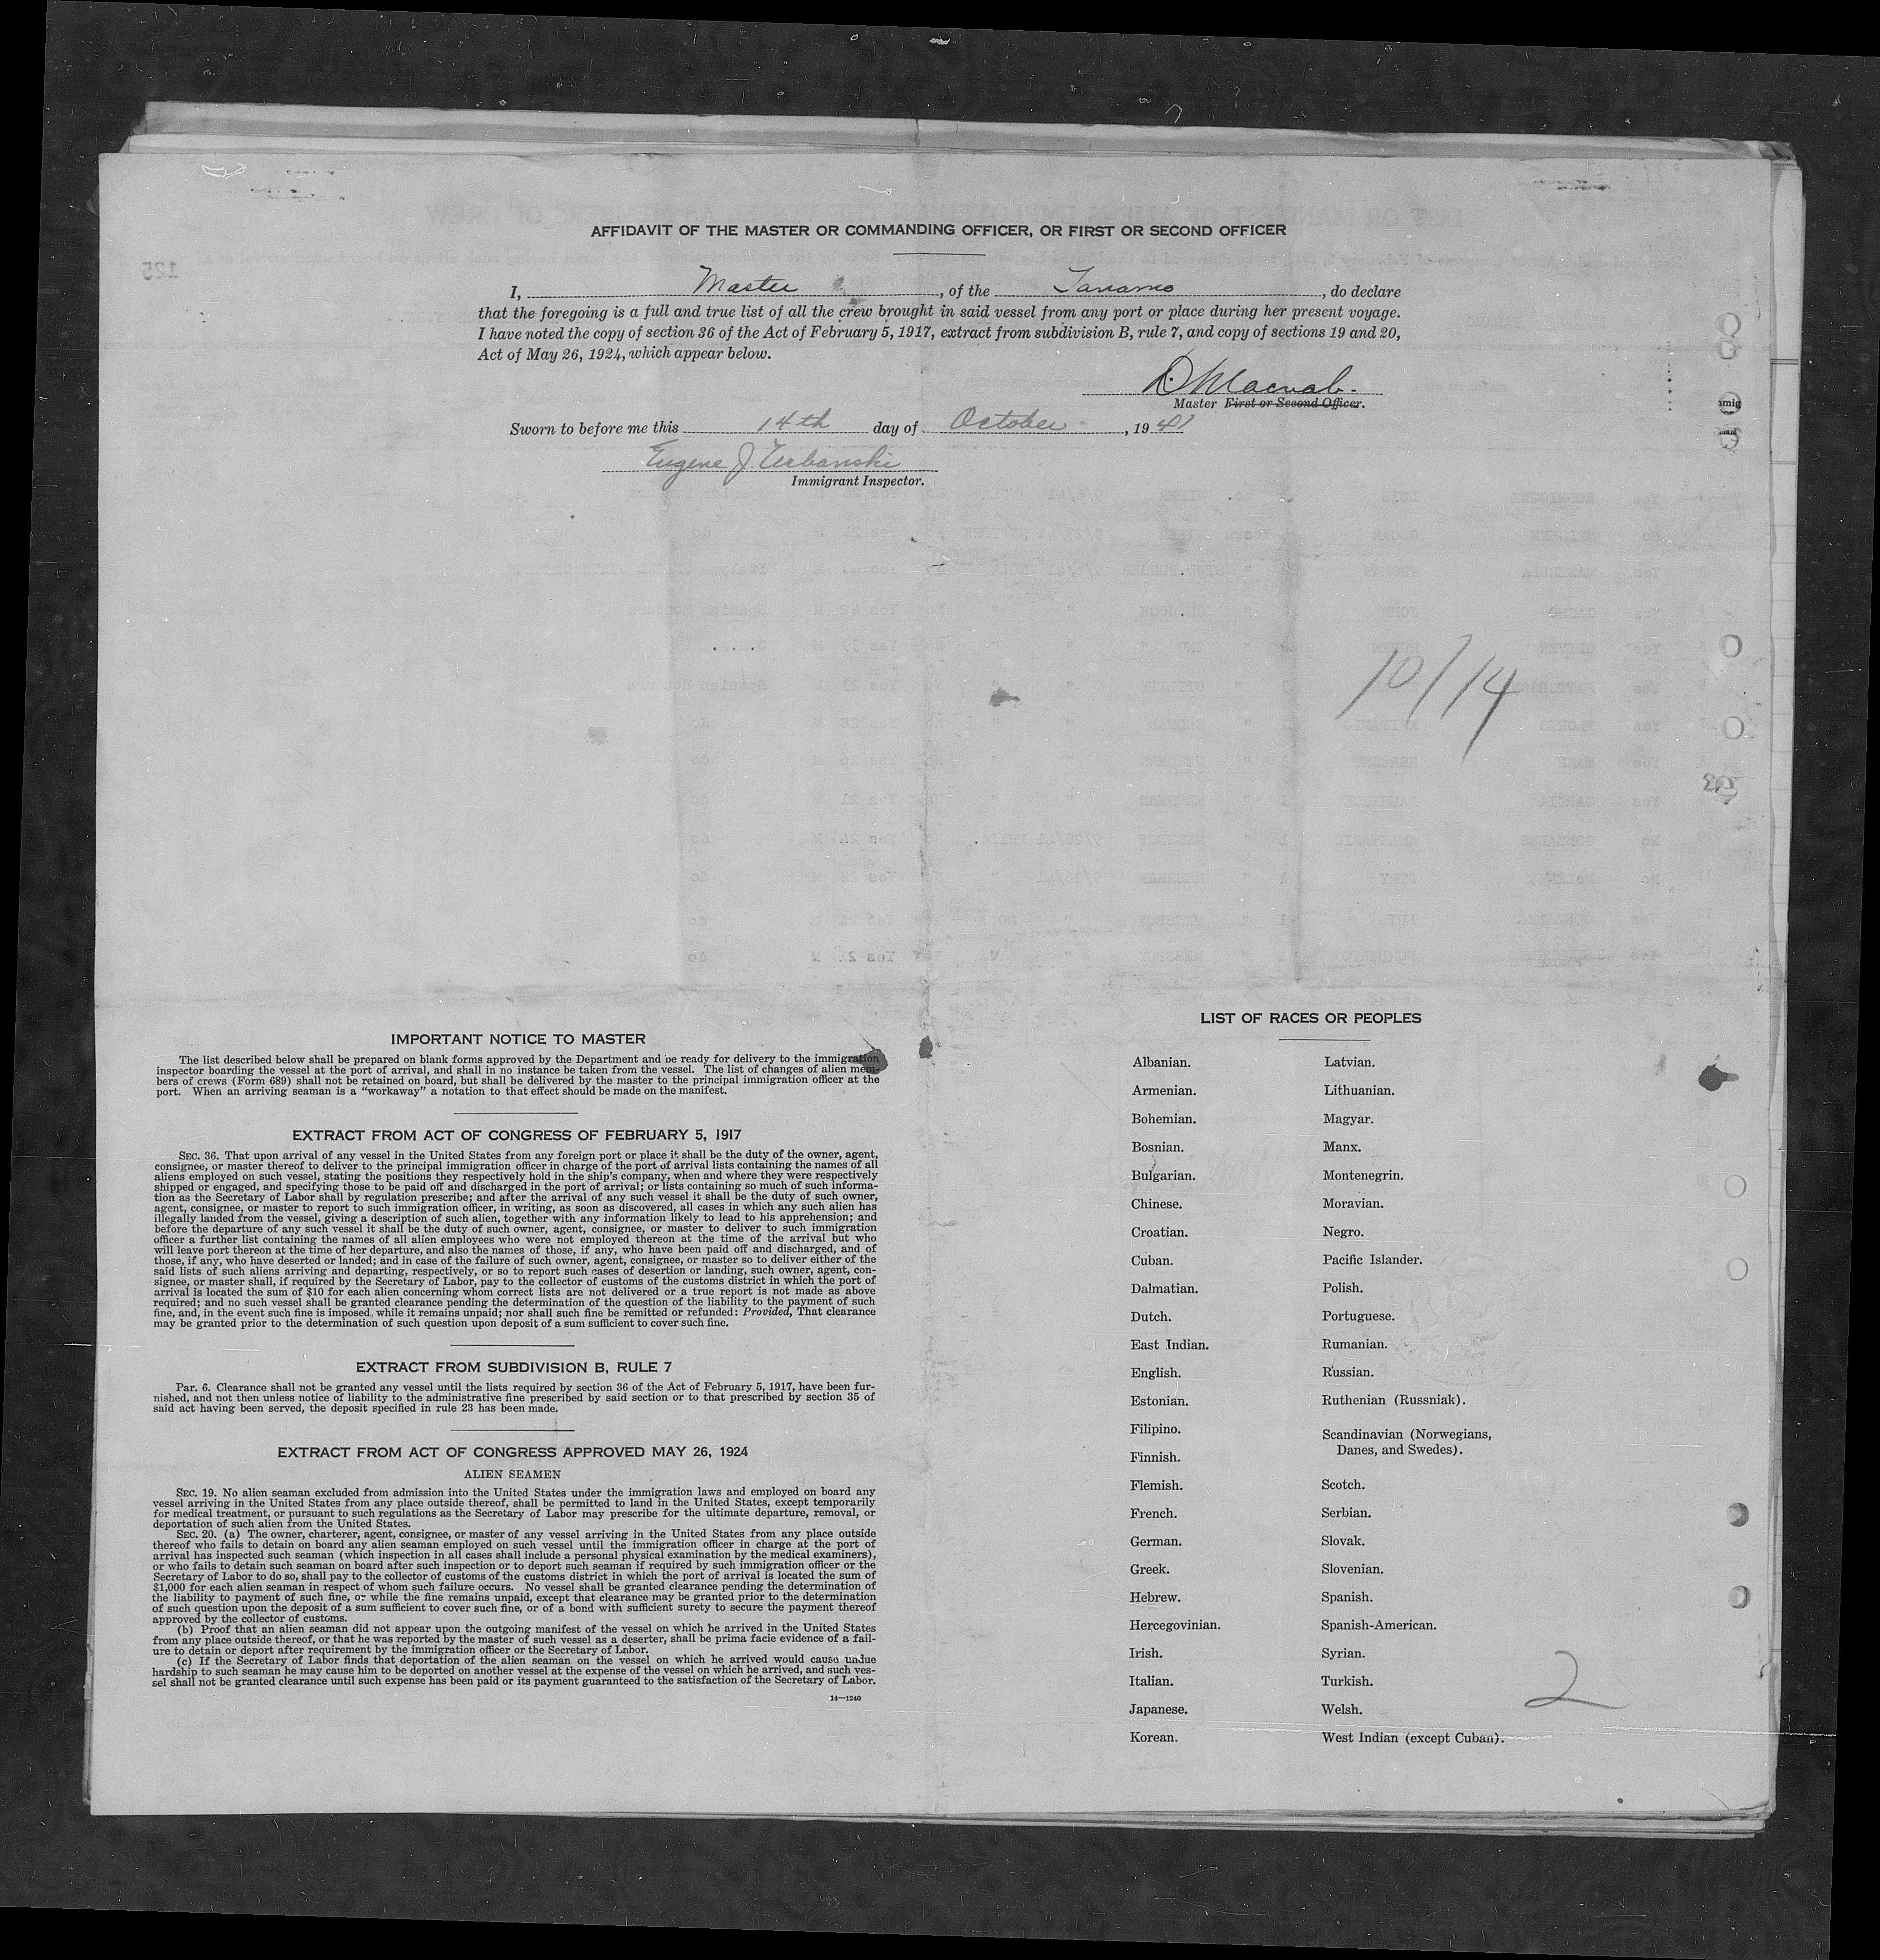 AFFIDAVIT OF THE MASTER OR COMMANDING OFFICER, OR FIRST OR SECOND OFFICER
I, Master, of the Tanamo, do declare
that the foregoing is a full and true list of all the crew brought in said vessel from any port or place during her present voyage.
I have noted the copy of section 36 of the Act of February 5, 1917, extract from subdivision B, rule 7, and copy of sections 19 and 20,
Act of May 26, 1924, which appear below.
D Macnab.
Master First or Second Officer.
Sworn to before me this 14th day of October, 1941
Eugene J. Urbanski
Immigrant Inspector.
10/14
IMPORTANT NOTICE TO MASTER
The list described below shall be prepared on blank forms approved by the Department and be ready for delivery to the immigration
inspector boarding the vessel at the port of arrival, and shall in no instance be taken from the vessel. The list of changes of alien mem-
bers of crews (Form 689) shall not be retained on board, but shall be delivered by the master to the principal immigration officer at the
port. When an arriving seaman is a "workaway" a notation to that effect should be made on the manifest.
EXTRACT FROM ACT OF CONGRESS OF FEBRUARY 5, 1917
SEC. 36. That upon arrival of any vessel in the United States from any foreign port or place it shall be the duty of the owner, agent,
consignee, or master thereof to deliver to the principal immigration officer in charge of the port of arrival lists containing the names of all
aliens employed on such vessel, stating the positions they respectively hold in the ship's company, when and where they were respectively
shipped or engaged, and specifying those to be paid off and discharged in the port of arrival; or lists containing so much of such informa-
tion as the Secretary of Labor shall by regulation prescribe; and after the arrival of any such vessel it shall be the duty of such owner,
agent, consignee, or master to report to such immigration officer, in writing, as soon as discovered, all cases in which any such alien has
illegally landed from the vessel, giving a description of such alien, together with any information likely to lead to his apprehension; and
before the departure of any such vessel it shall be the duty of such owner, agent, consignee, or master to deliver to such immigration
officer a further list containing the names of all alien employees who were not employed thereon at the time of the arrival but who
will leave port thereon at the time of her departure, and also the names of those, if any, who have been paid off and discharged, and of
those, if any, who have deserted or landed; and in case of the failure of such owner, agent, consignee, or master so to deliver either of the
said lists of such aliens arriving and departing, respectively, or so to report such cases of desertion or landing, such owner, agent, con-
signee, or master shall, if required by the Secretary of Labor, pay to the collector of customs of the customs district in which the port of
arrival is located the sum of $10 for each alien concerning whom correct lists are not delivered or a true report is not made as above
required; and no such vessel shall be granted clearance pending the determination of the question of the liability to the payment of such
fine, and, in the event such fine is imposed, while it remains unpaid; nor shall such fine be remitted or refunded: Provided, That clearance
may be granted prior to the determination of such question upon deposit of a sum sufficient to cover such fine.
EXTRACT FROM SUBDIVISION B, RULE 7
Par. 6. Clearance shall not be granted any vessel until the lists required by section 36 of the Act of February 5, 1917, have been fur-
nished, and not then unless notice of liability to the administrative fine prescribed by said section or to that prescribed by section 35 of
said act having been served, the deposit specified in rule 23 has been made.
EXTRACT FROM ACT OF CONGRESS APPROVED MAY 26, 1924
ALIEN SEAMEN
SEC. 19. No alien seaman excluded from admission into the United States under the immigration laws and employed on board any
vessel arriving in the United States from any place outside thereof, shall be permitted to land in the United States, except temporarily
for medical treatment, or pursuant to such regulations as the Secretary of Labor may prescribe for the ultimate departure, removal, or
deportation of such alien from the United States.
SEC. 20. (a) The owner, charterer, agent, consignee, or master of any vessel arriving in the United States from any place outside
thereof who fails to detain on board any alien seaman employed on such vessel until the immigration officer in charge at the port of
arrival has inspected such seaman (which inspection in all cases shall include a personal physical examination by the medical examiners),
or who fails to detain such seaman on board after such inspection or to deport such seaman if required by such immigration officer or the
Secretary of Labor to do so, shall pay to the collector of customs of the customs district in which the port of arrival is located the sum of
$1,000 for each alien seaman in respect of whom such failure occurs. No vessel shall be granted clearance pending the determination of
the liability to payment of such fine, or while the fine remains unpaid, except that clearance may be granted prior to the determination
of such question upon the deposit of a sum sufficient to cover such fine, or of a bond with sufficient surety to secure the payment thereof
approved by the collector of customs.
(b) Proof that an alien seaman did not appear upon the outgoing manifest of the vessel on which he arrived in the United States
from any place outside thereof, or that he was reported by the master of such vessel as a deserter, shall be prima facie evidence of a fail-
ure to detain or deport after requirement by the immigration officer or the Secretary of Labor.
(c) If the Secretary of Labor finds that deportation of the alien seaman on the vessel on which he arrived would cause undue
hardship to such seaman he may cause him to be deported on another vessel at the expense of the vessel on which he arrived, and such ves-
sel shall not be granted clearance until such expense has been paid or its payment guaranteed to the satisfaction of the Secretary of Labor.
14—1240
LIST OF RACES OR PEOPLES
Albanian.
Armenian.
Bohemian.
Bosnian.
Bulgarian.
Chinese.
Croatian.
Cuban.
Dalmatian.
Dutch.
East Indian.
English.
Estonian.
Filipino.
Finnish.
Flemish.
French.
German.
Greek.
Hebrew.
Hercegovinian.
Irish.
Italian.
Japanese.
Korean.
Latvian.
Lithuanian.
Magyar.
Manx.
Montenegrin.
Moravian.
Negro.
Pacific Islander.
Polish.
Portuguese.
Rumanian.
Russian.
Ruthenian (Russniak).
Scandinavian (Norwegians,
Danes, and Swedes).
Scotch.
Serbian.
Slovak.
Slovenian.
Spanish.
Spanish-American.
Syrian.
Turkish.
Welsh.
West Indian (except Cuban).
2